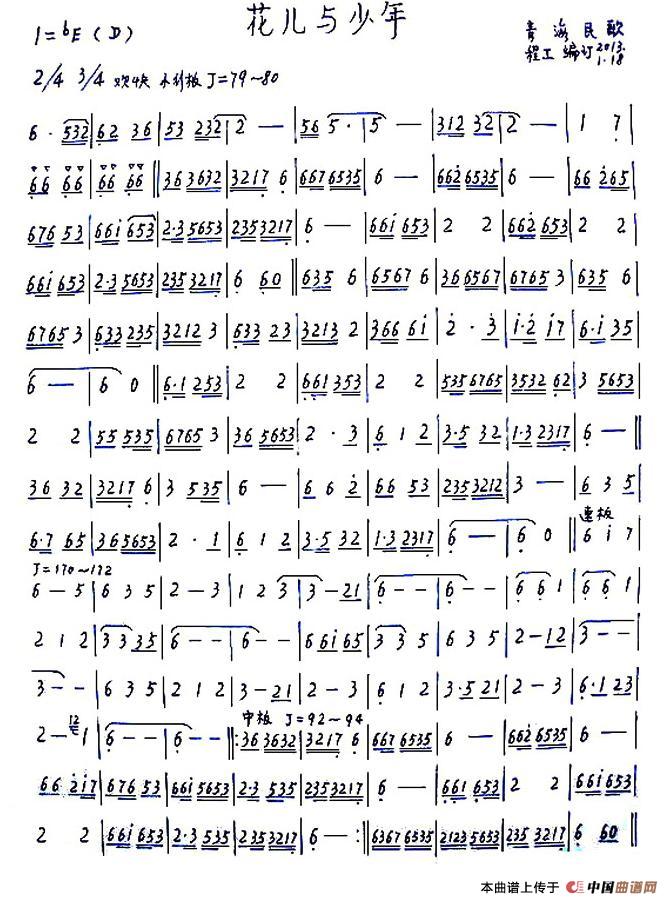 花儿与少年
1=ᵇE (D)
青海民歌
程工 编订 2013.1.18
2/4 3/4 欢快 小行板 J=79~80
6· 532|62 36|53 232|2 —|56 5·|5 —|312 32|2 —|1 7|
66 66|66 66‖363632|3217 6|667 6535|6 —|662 6535|6 —|66 265|
676 53|661 653|2·3 5653|235 3217|6 —|661 653|2 2|662 653|2 2|
661 653|2·3 5653|235 3217|6 60‖635 6|6567 6|366567|6765 3|635 6|
6765 3|633 235|3212 3|633 23|3213 2|366 61|2· 3|1·2 17|6·1 35|
6 —|6 0‖6·1 253|2 2|661 353|2 2|535 6765|3532 62|3 5653|
2 2|55 535|6765 3|36 5653|2· 3|6 1 2|3·5 32|1·3 2317|6 —‖
36 32|3217 6|3 535|6 —|6 6 2|66 53|235 3212|3 —|6 3 5|
速板
6·7 65|365653|2· 1|6 1 2|3·5 32|1·3 2317|6 —|6 0‖6 1 7|
J=170~172
6 — 5|6 3 5|2 — 3|1 2 3|3 — 21|6 — —|6 — —|6 6 1|6 6 1|
2 1 2|3 3 35|6 — —|6 — —|6 61 65|3 3 5|6 3 5|2 — 12|3 — —|
3 — —|6 3 5|2 1 2|3 — 21|2 — 3|6 1 2|3·5 21|2 — 3|6·1 23|
中板 J=92~94
2 — 12 1|6 — —|6 — —‖:36 3632|3217 6|667 6535|6 —|662 6535|6 —|
66 217|676 53|661 5653|2·3 535|235 3217|6 —|661 653|2 2|661 653|
2 2|661 653|2·3 535|235 3217|6 —:‖6367 6535|2123 5653|235 3217|6 60‖
本曲谱上传于 中国曲谱网